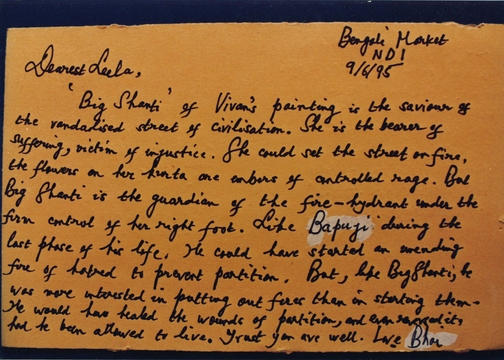 Bengali Market
ND1
9/6/95
Dearest Leela,
'Big Shanti' of Vivan's painting is the saviour of
the vandalised street of civilisation. She is the bearer of
suffering, victim of injustice. She could set the street on fire,
the flowers on her kurta are embers of controlled rage. But
Big Shanti is the guardian of the fire-hydrant under the
firm control of her right foot. Like Bapuji during the
last phase of his life. He could have started an unending
fire of hatred to prevent partition. But, like Big Shanti, he
was more interested in putting out fires than in starting them.
He would have healed the wounds of partition, and even it,
had he been allowed to live. Trust you are well. Love Bhai